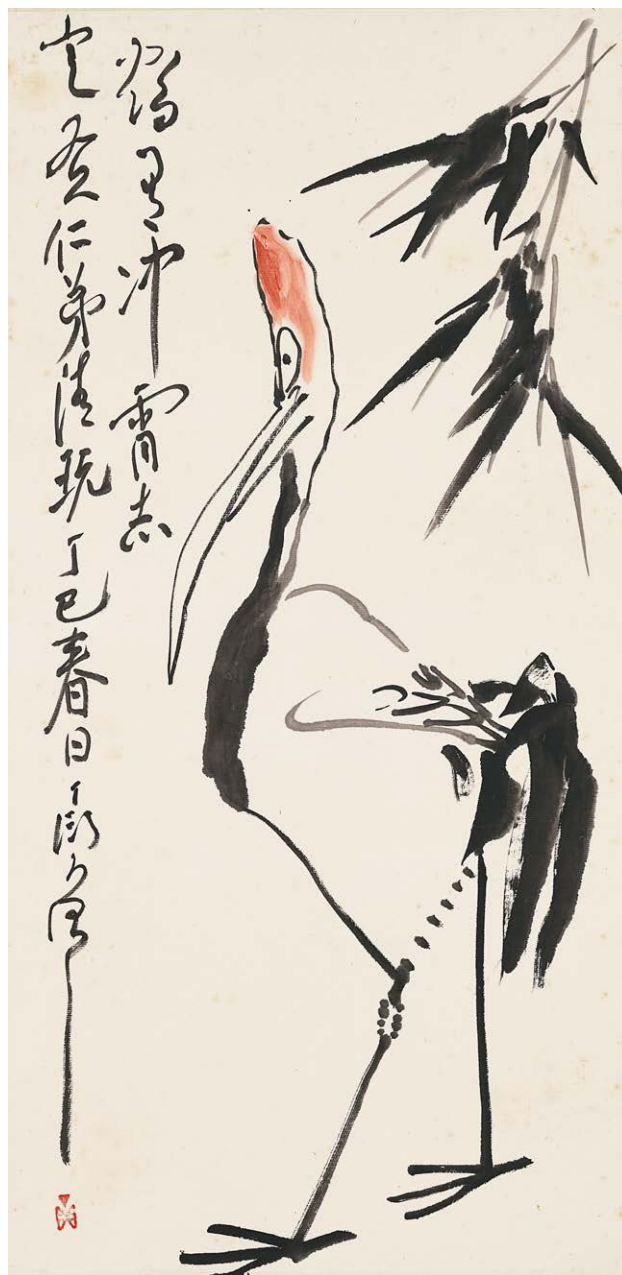 有沖霄志
定仁弟清玩丁巳春日丁衍庸